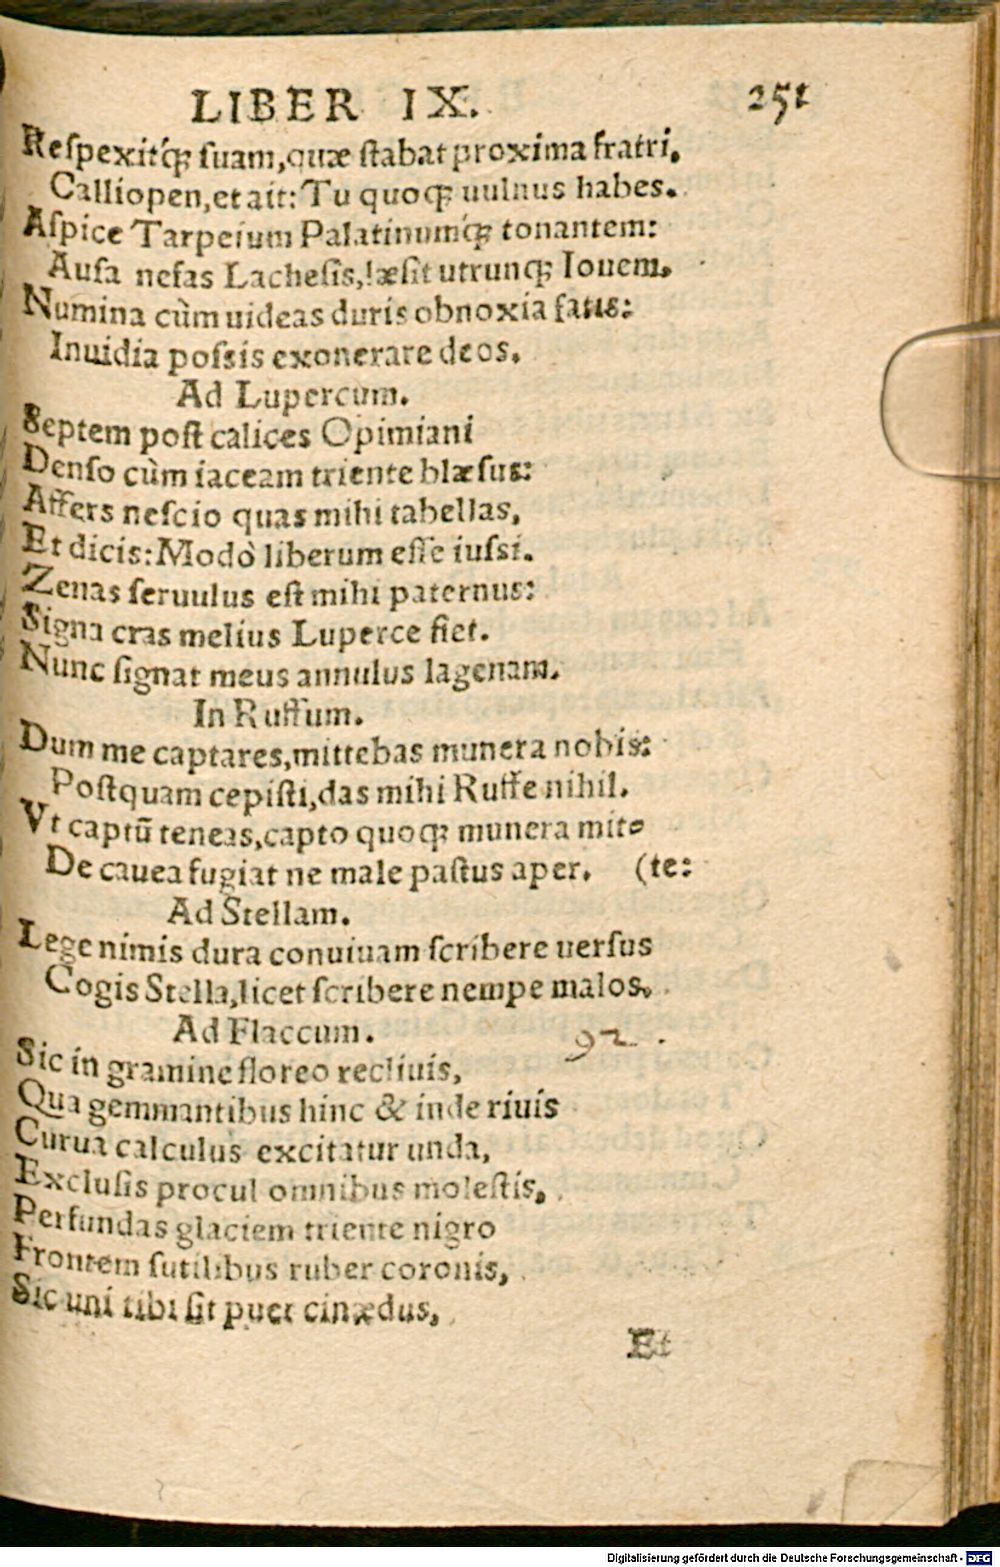 LIBER IX. 251
Reſpexitq́ꝫ ſuam, quæ ſtabat proxima fratri,
Calliopen, et ait: Tu quoqꝫ uulnus habes.
Aſpice Tarpeium Palatinumq́ꝫ tonantem:
Auſa nefas Lacheſis, læſit utrunqꝫ Iouem.
Numina cùm uideas duris obnoxia fatis:
Inuidia poſsis exonerare deos.
Ad Lupercum.
Septem poſt calices Opimiani
Denſo cùm iaceam triente blæſus:
Affers neſcio quas mihi tabellas,
Et dicis: Modò liberum eſſe iuſsi.
Zenas ſeruulus eſt mihi paternus:
Signa cras melius Luperce fiet.
Nunc ſignat meus annulus lagenam.
In Ruffum.
Dum me captares, mittebas munera nobis:
Poſtquam cepiſti, das mihi Ruffe nihil.
Vt captū teneas, capto quoqꝫ munera mito
De cauea fugiat ne male paſtus aper. (te:
Ad Stellam.
Lege nimis dura conuiuam ſcribere uerſus
Cogis Stella, licet ſcribere nempe malos.
Ad Flaccum. 92.
Sic in gramine floreo recliuis,
Qua gemmantibus hinc & inde riuis
Curua calculus excitatur unda,
Excluſis procul omnibus moleſtis,
Perfundas glaciem triente nigro
Frontem ſutilibus ruber coronis,
Sic uni tibi ſit puer cinædus,
Et
Digitalisierung gefördert durch die Deutsche Forschungsgemeinschaft - DFG